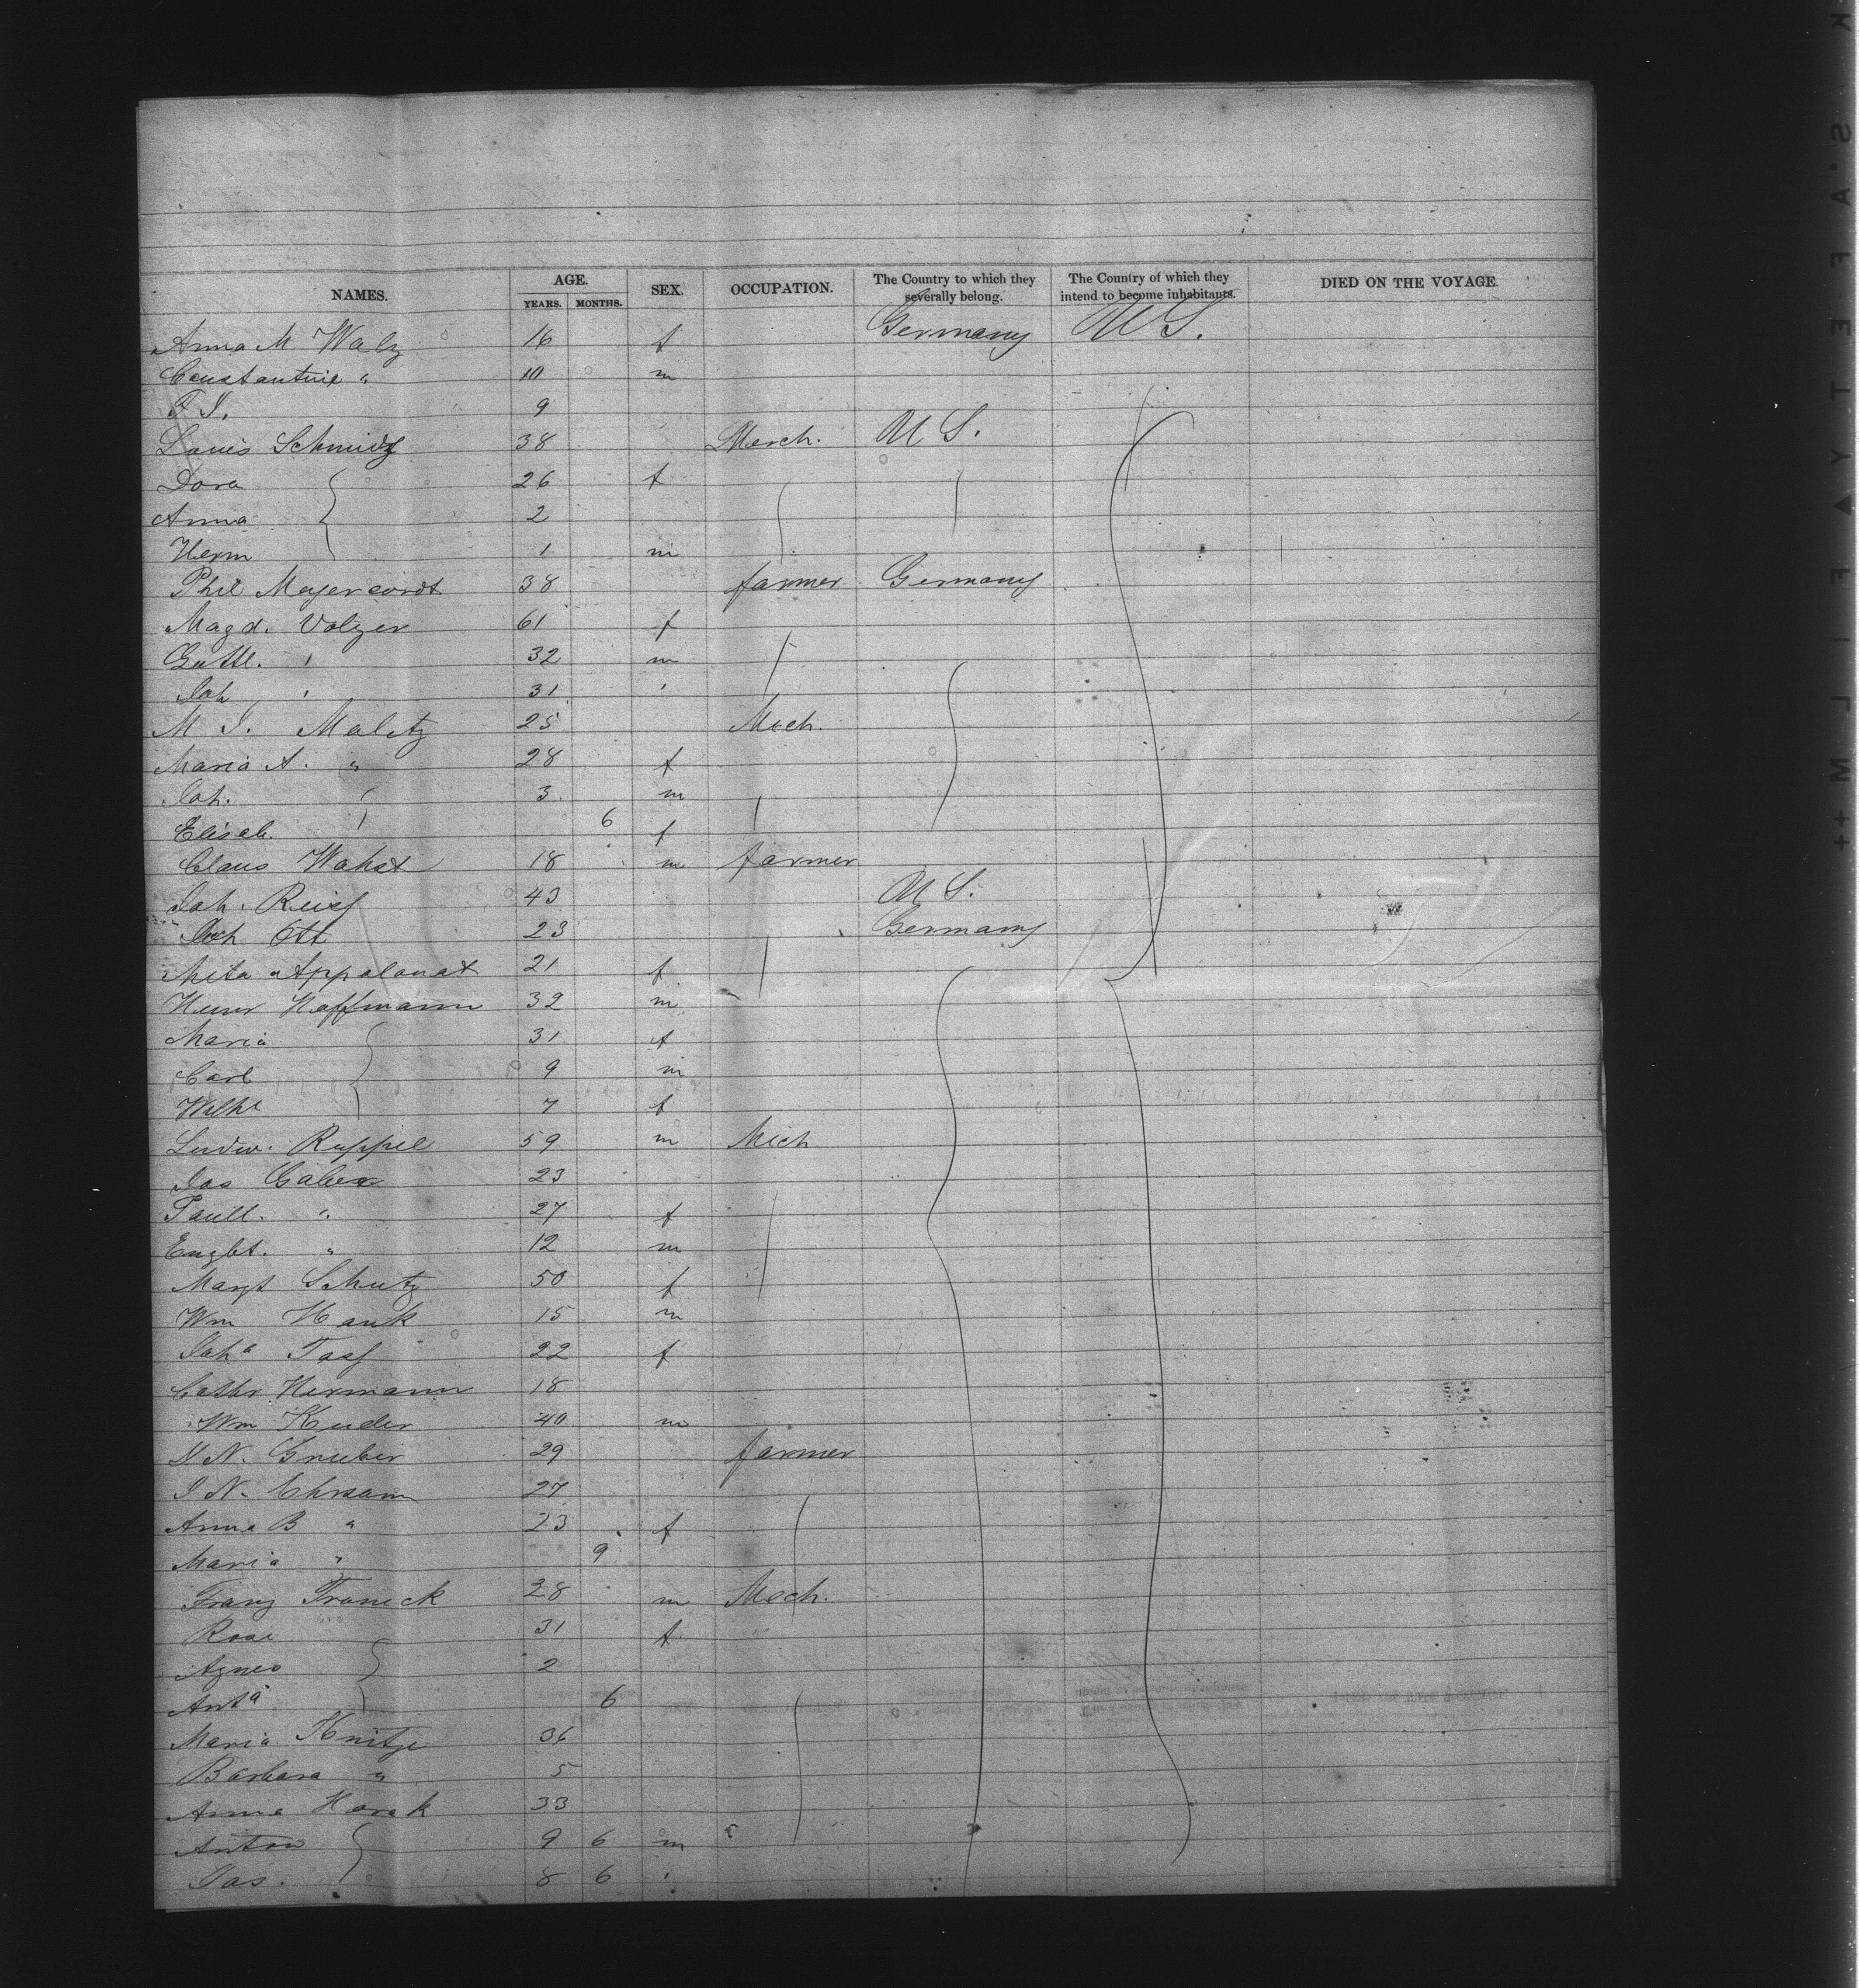 NAMES. AGE. YEARS. MONTHS. SEX. OCCUPATION. The Country to which they severally belong. The Country of which they intend to become inhabitants. DIED ON THE VOYAGE.
Anna M Walz 16 f Germany U S.
Constantine " 10 m
F J. 9
Louis Schmidt 38 Merch. U S.
Dora 26 f
Anna 2
Herm 1 m
Phil 38 farmer Germany
Magd. Volzer 61 f
Gottl. " 32 m
Joh " 31 "
M J. Maletz 25 Mech.
Maria A. " 28 f
Joh. " 3 m
Elisab. " 6 f
Claus Wahst 18 m farmer
Joh. Reis 43 U S.
Joh Ott 23 Germany
Meta Appalonat 21 f
Henr Hoffmann 32 m
Maria 31 f
Carl 9 m
Wilhe 7 f
Ludw. Ruppel 59 m Mech
Jas Gaber 23
Paull. " 27 f
Englbt. " 12 m
Margt Schutz 50 f
Wm Hauk 15 m
Joha 22 f
Cathr Hermann 18
Wm Kuder 40 m
M N. Gruber 29 farmer
J N. 27
Anna B " 23 f
Maria " 9
Franz Traneck 28 m Mech.
Rosa 31 f
Agnes 2
Anta 6
Maria 36
Barbara " 5
Anna Horak 33
Anton 9 6 m
Jas. 8 6 "
SAFETY ▲ FILM ++